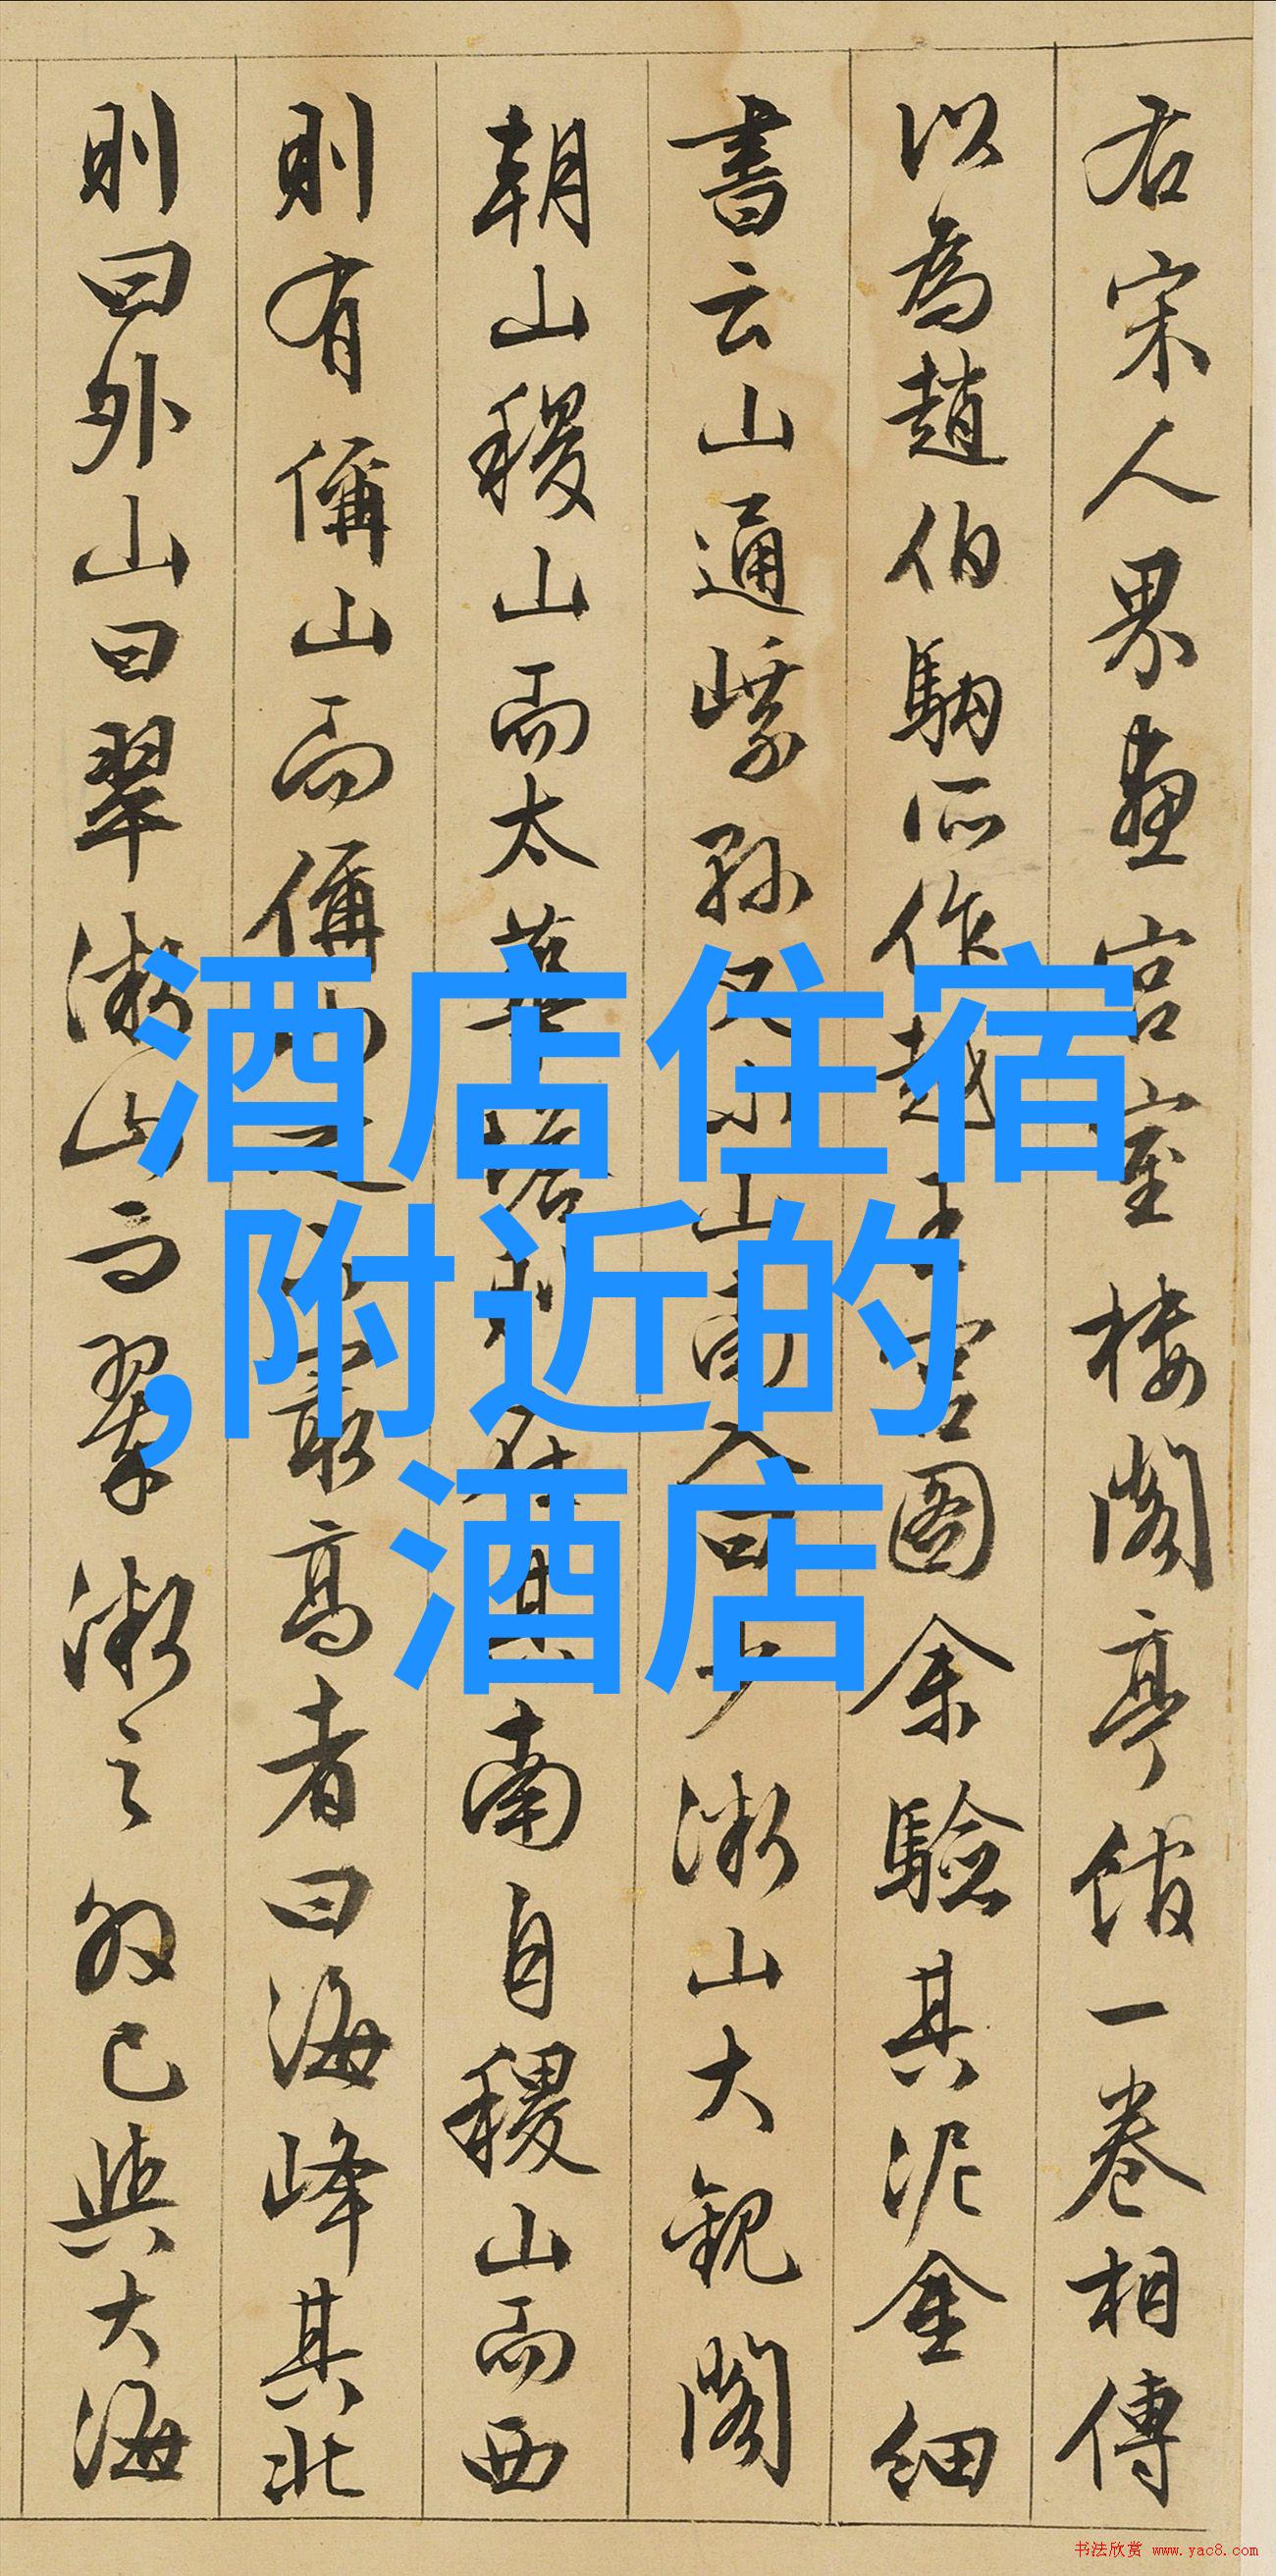 右宋人界畫宮室樓閣亭館一卷相傳
以為趙伯駒所作越王宮圖余驗其泥金細
書云山通嶀又山南入山大觀閣
朝山稷山而太南自稷山而西
則有偁山而偁最高者曰海峰其北
則曰外山曰翠山之外已與大海
酒店住宿
,附近的
酒店
书法欣赏 www.yac8.com